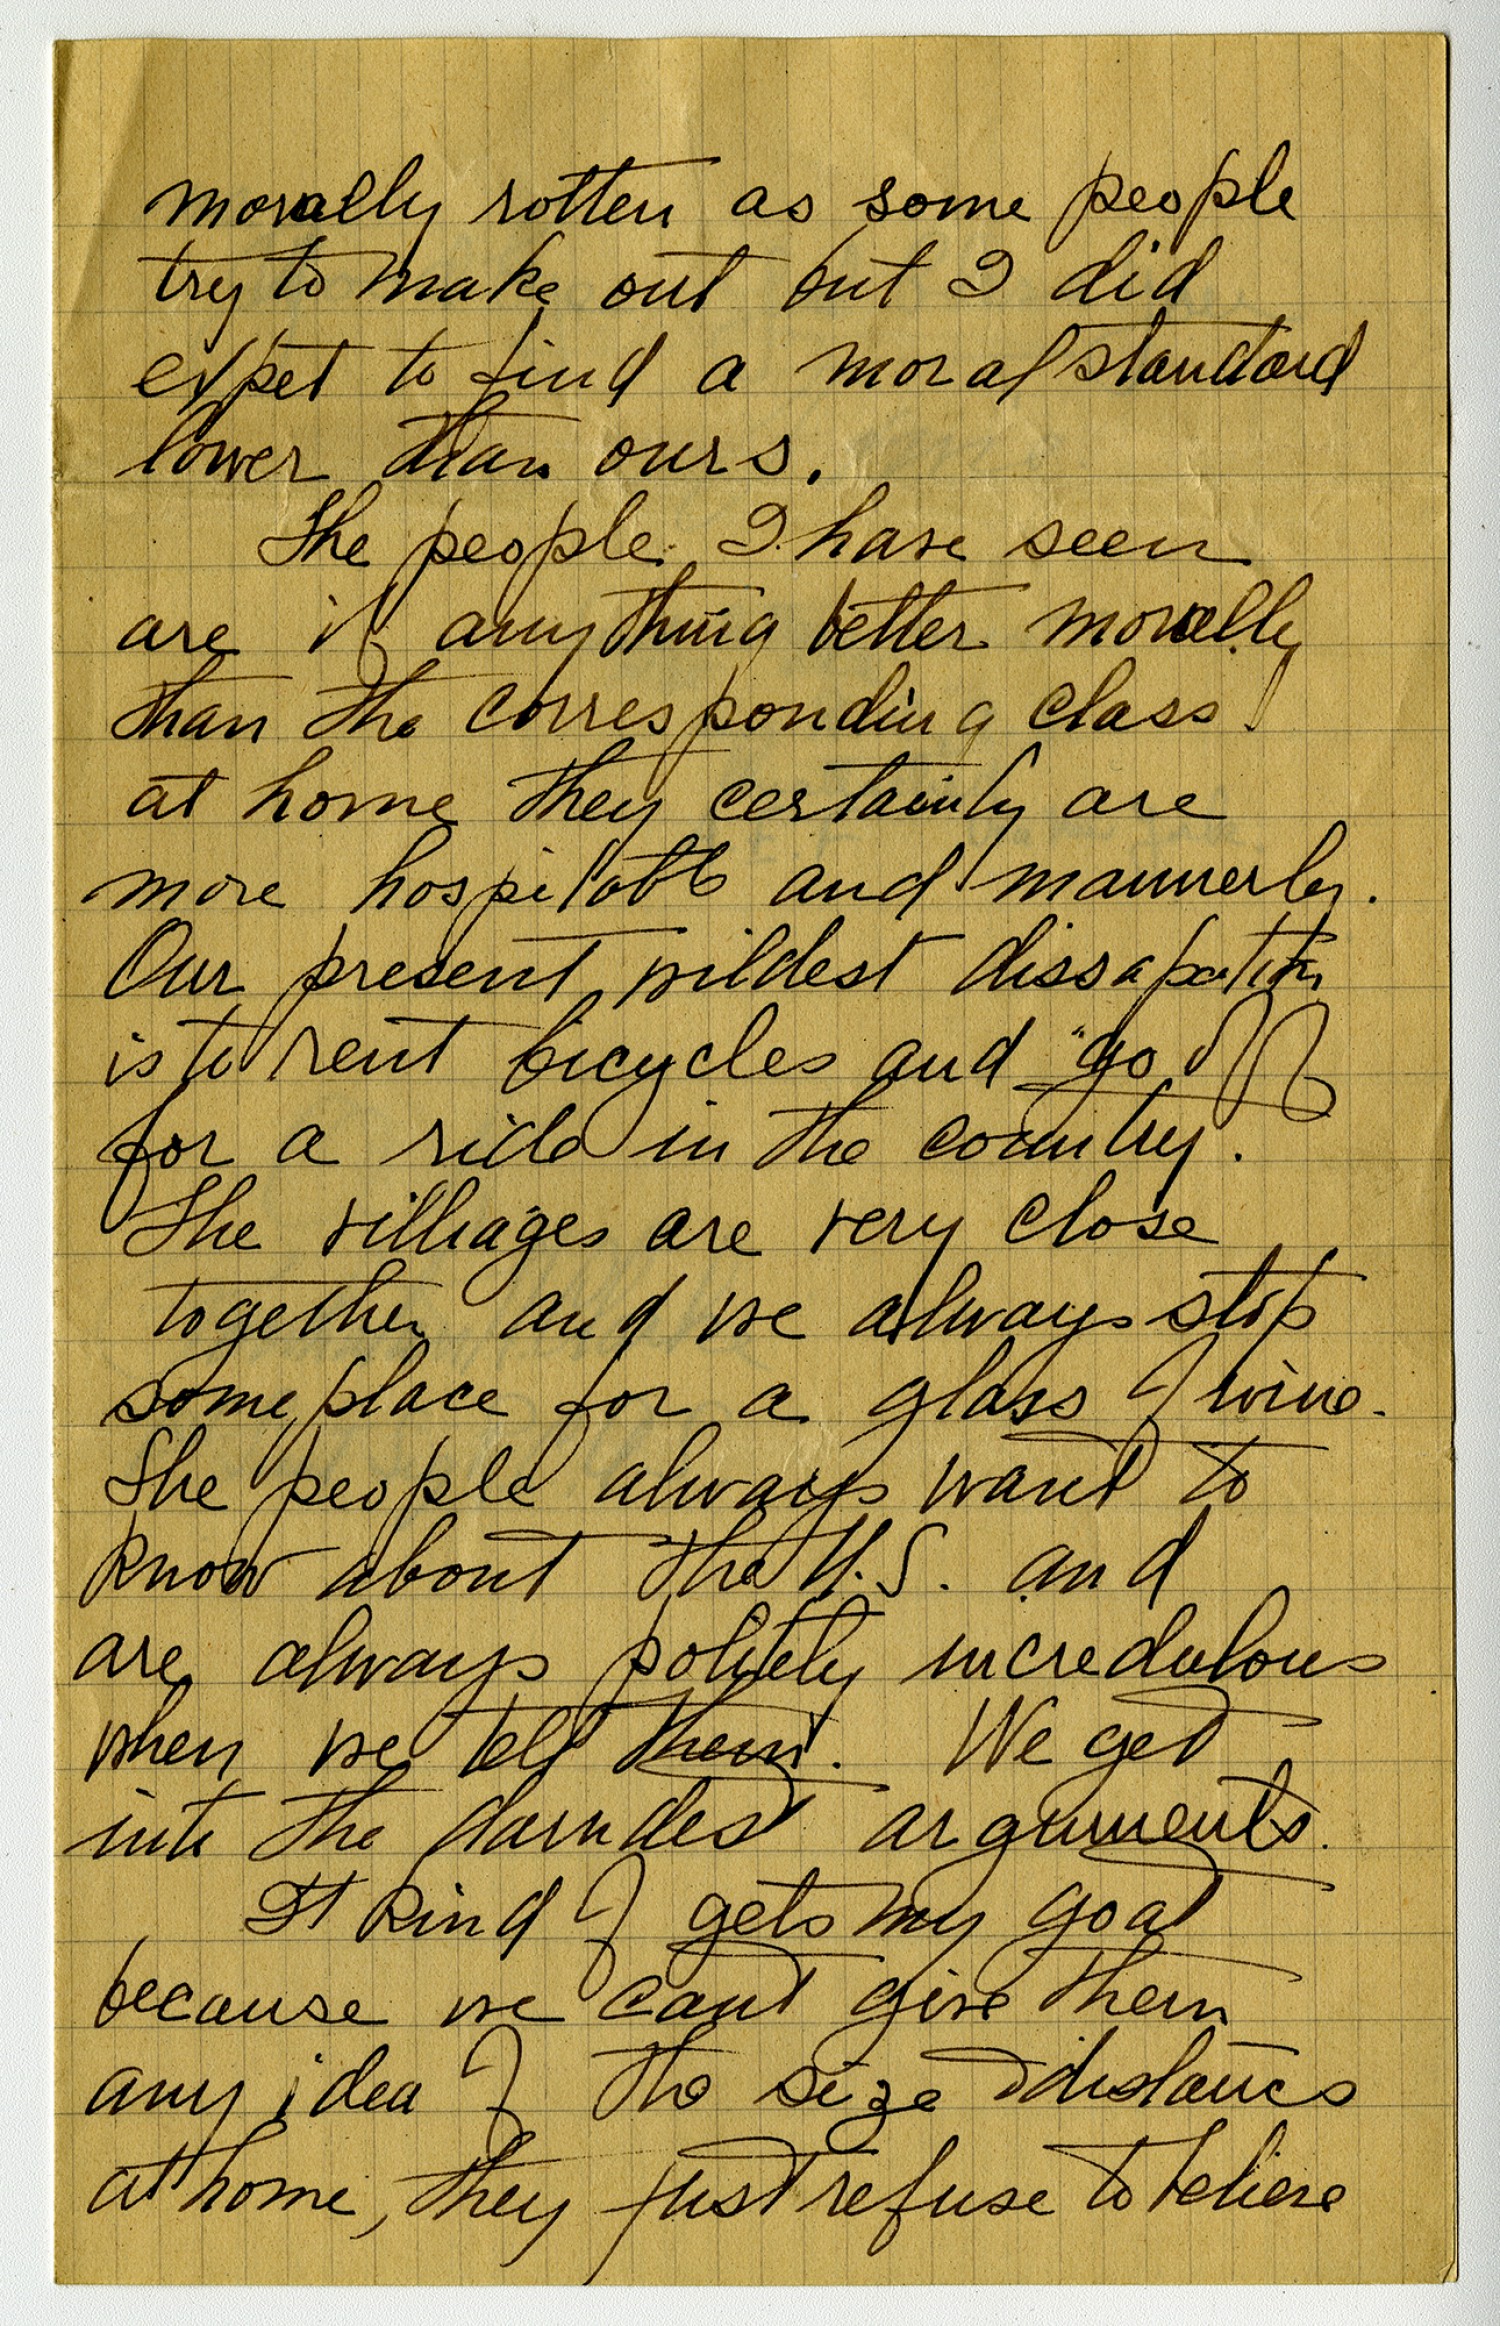 morally rotten as some people
try to make out but I did
expet to find a moral standard
lower than ours.
The people I have seen
are if anything better morally
than the corresponding class
at home they certainly are
more hospitable and mannerly.
Our present wildest dissapation
is to rent bicycles and "go off
for a ride in the country.
The villiages are very close
together and we always stop
some place for a glass of wine.
The people always want to
know about the U.S. and
are always politely incredulous
when we tell them. We get
into the darndest arguments.
It kind of gets my goat
because we cant give them
any idea of the size & distances
at home, they just refuse to believe